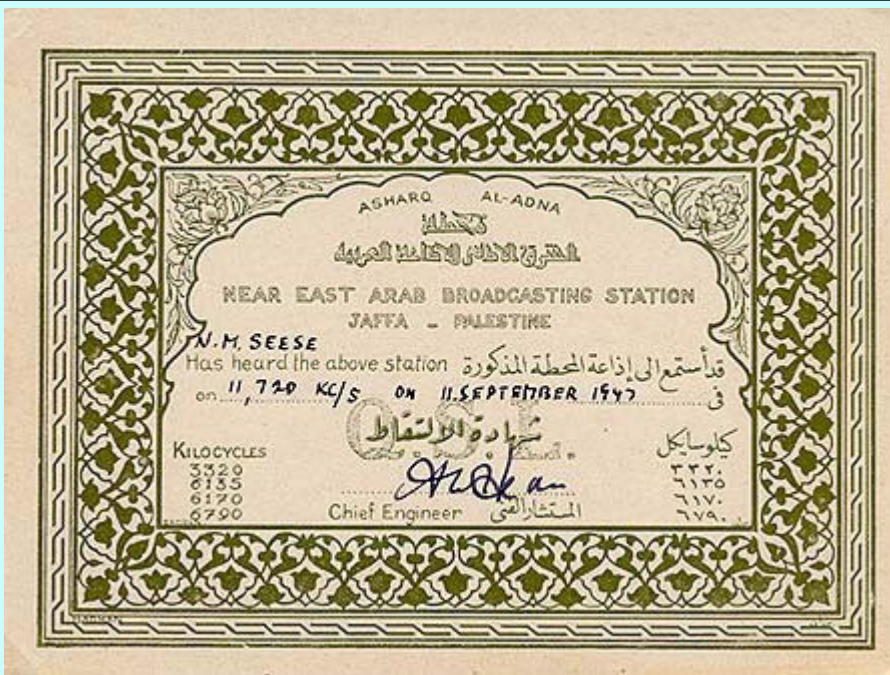 ASHARQ AL-ADNA
محطة
الشرق الادنى للاذاعة العربية
NEAR EAST ARAB BROADCASTING STATION
JAFFA - PALESTINE
N. M. SEESE
Has heard the above station قد أستمع الى إذاعة المحطة المذكورة
on 11,720 KC/S ON 11. SEPTEMBER 1947 في
Q.S.L.
شهادة الالتقاط
KILOCYCLES كيلوسايكل
3320 ٣٣٢٠
6135 ٦١٣٥
6170 ٦١٧٠
6790 ٦٧٩٠
Chief Engineer المستشار الفني